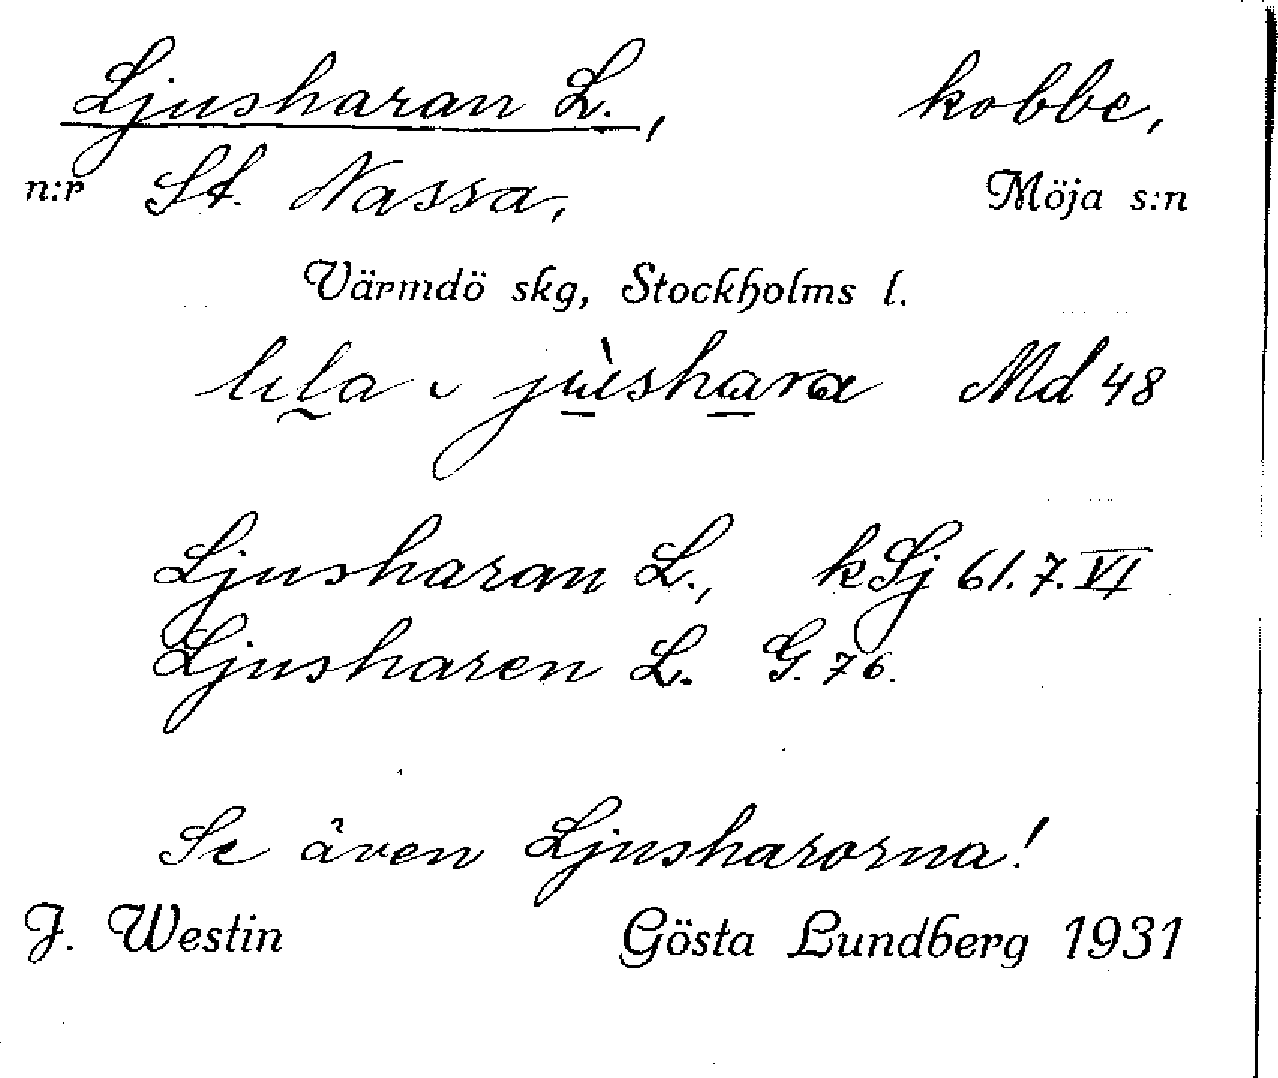 Ljusharan L., kobbe,
n:r St. Nassa, Möja s:n
Värmdö skg, Stockholms l.
lila jùshara Md 48
Ljusharan L., kSj 61.7.VI
Ljusharen L. G. 76.
Se även Ljusharorna!
J. Westin Gösta Lundberg 1931